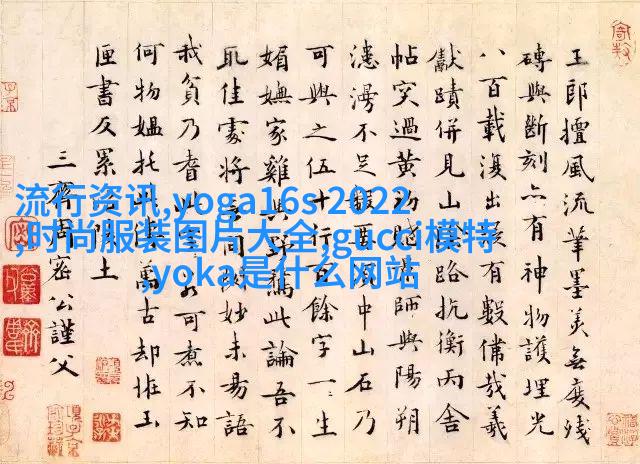 王郎擅風流筆墨美無度殘
磚與斷刻亦有神物護埋光
八百載復出有數儔哉羲
獻蹟併見山路抗衡兩舍
帖突過黃初師與陽朔
漶漫不足風中山石乃
可與之伍十行百餘字一一生
媚嫵家雞與野鶩此論吾不
取佳處將同妙未易語
我貧乃耆此可煮不知
何物媼托此萬古却誑玉
匣書反累土
三齋周密公謹父
流行资讯,yoga16s 2022
,时尚服装图片大全,gucci模特
,yoka是什么网站